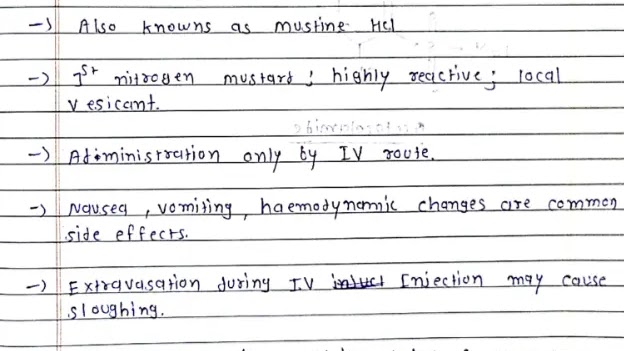 -> Also knowns as mustine HCl
-> Ist nitrogen mustard ; highly reactive ; local
vesicant.
-> Administration only by IV route.
-> Nausea , vomiting , haemodynamic changes are common
side effects.
-> Extravasation during I.V Injection may cause
sloughing.